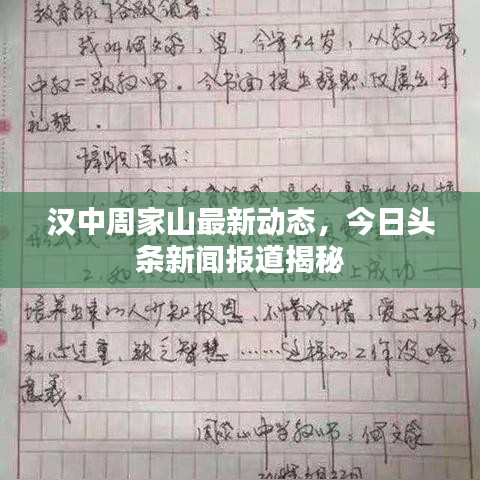 教育部门各级领导：
我叫何文家，男，今年54岁，从教32年，
中教一级教师。今书面提出辞职，仅属出于
礼貌。
辞职原因：
汉中周家山最新动态，今日头
条新闻报道揭秘
上成功——
培养出来的人少知报恩、不懂珍惜，爱心缺失，
私心过重，缺乏智慧……这样的工作没啥
意义。
周家山中学教师：何文家